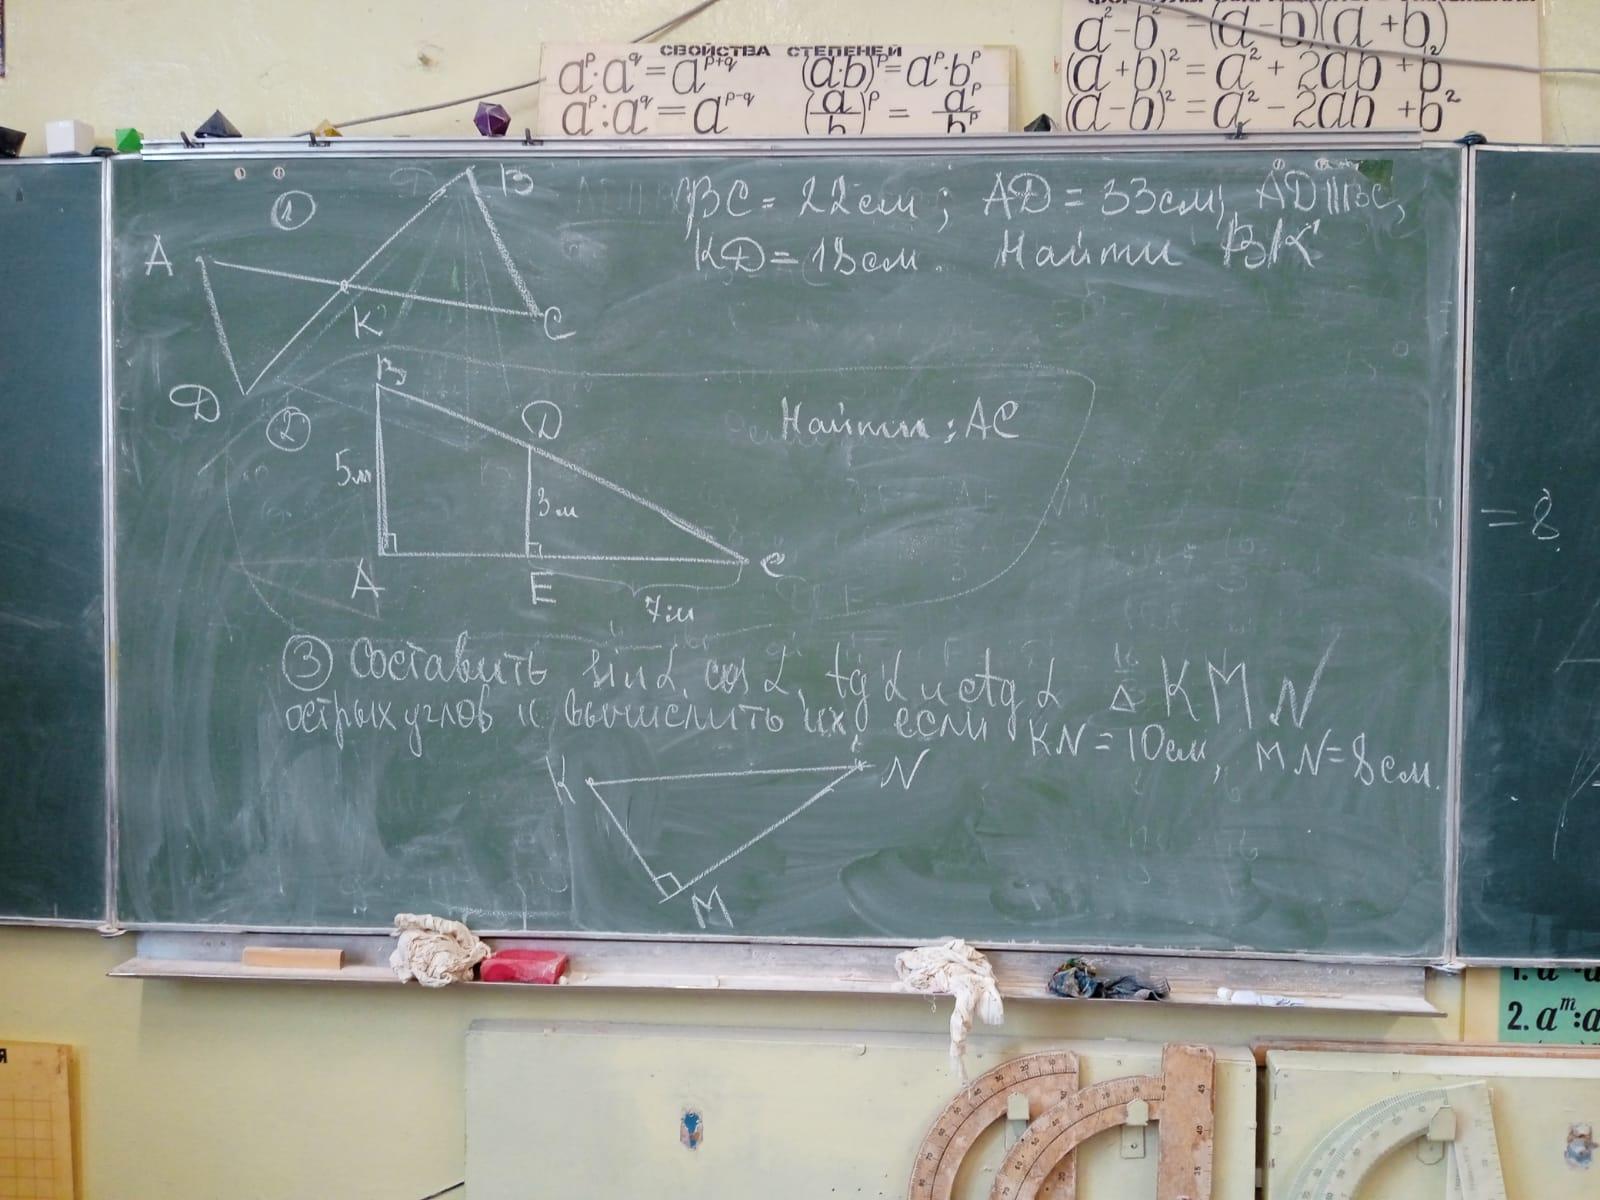 СВОЙСТВА СТЕПЕНЕЙ
aᵖ·a^q = a^(p+q) (a·b)ᵖ = aᵖ·bᵖ
aᵖ:a^q = a^(p-q) (a/b)ᵖ = aᵖ/bᵖ
a²-b² = (a-b)(a+b)
(a+b)² = a² + 2ab + b²
(a-b)² = a² - 2ab + b²
1
A
B
K
C
D
BC = 22см; AD = 33см, AD||BC,
KD = 18см. Найти BK
2
B
D
5м
3м
A
E
C
7м
Найти: AC
= 8
3 Составить sin α, cos α, tg α и ctg α в Δ KMN
острых углов и вычислить их, если KN = 10см, MN = 8см.
K
N
M
2. aᵐ:a